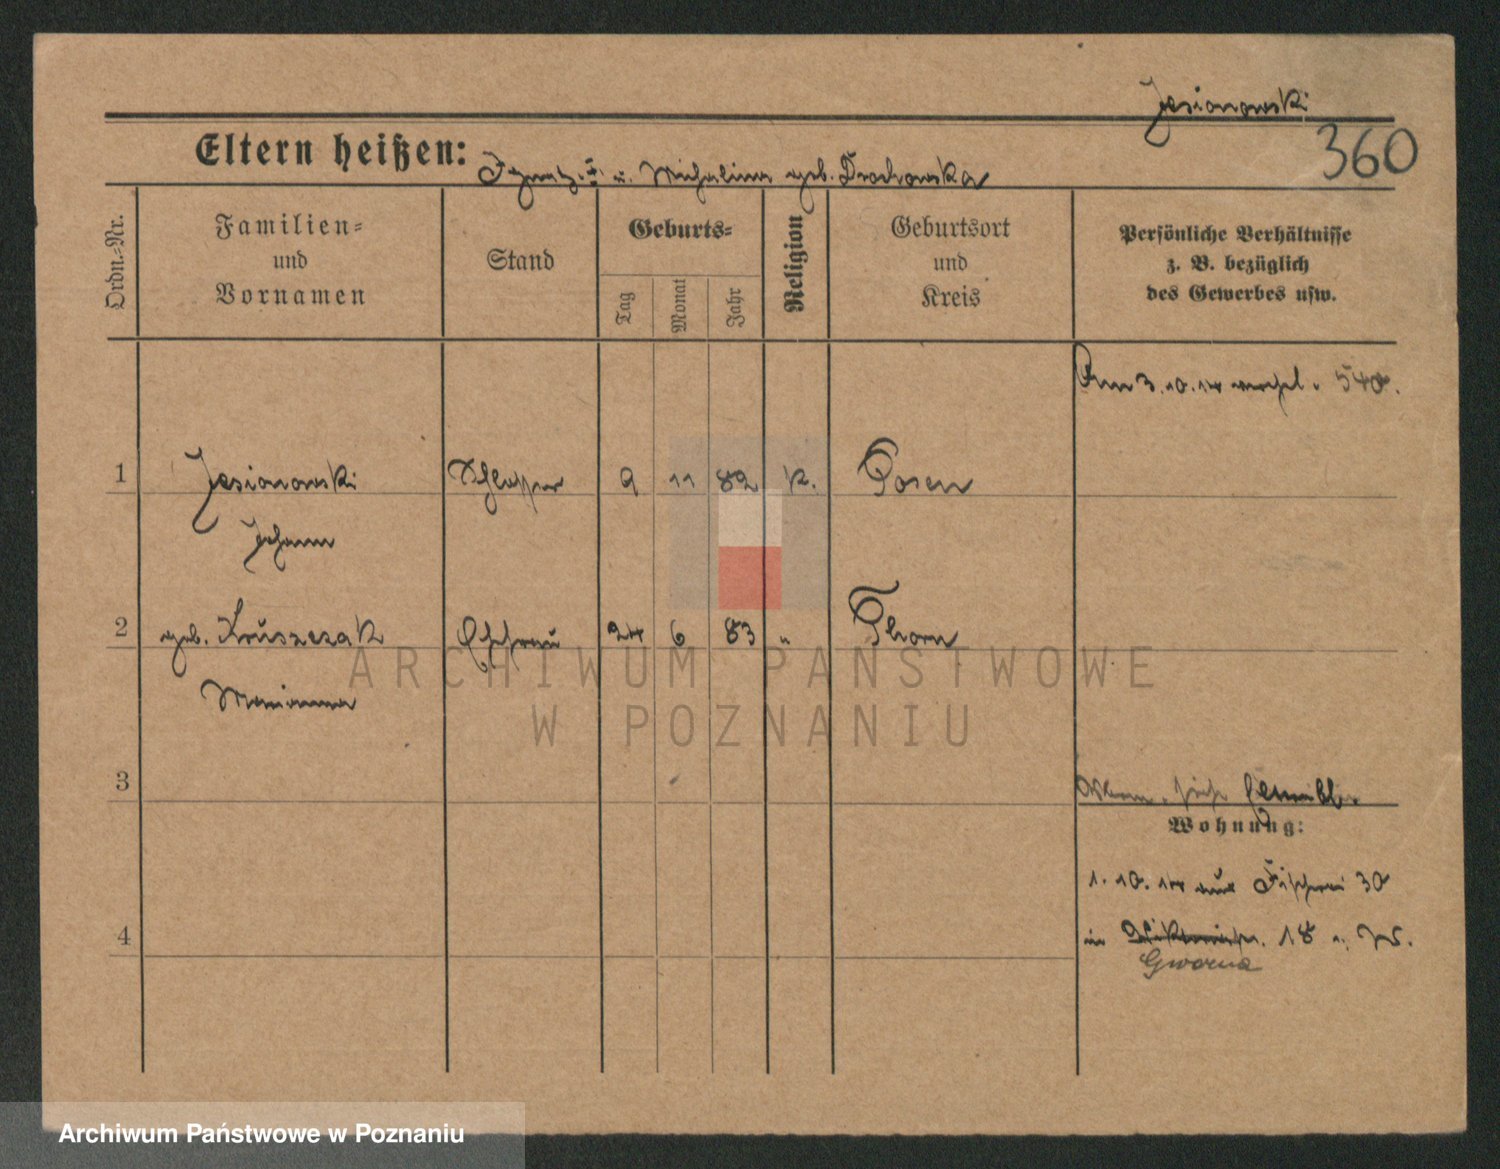 Jesionowski
360
Eltern heißen: Ignatz I u. Michalina geb. Drochowska
Ordn.-Nr.
Familien-
und
Vornamen
Stand
Geburts-
Tag
Monat
Jahr
Religion
Geburtsort
und
Kreis
Persönliche Verhältnisse
z. B. bezüglich
des Gewerbes usw.
3.10.14
1 Jesionowski Schlosser 9 11 82 K. Posen
Johann
2 geb. Kruszczak Ehefrau 24 6 83 " Thorn
Marianna
ARCHIWUM PAŃSTWOWE
W POZNANIU
3
Wohnung:
1.10.14 aus Fischerei 30
4
in Viktoriastr. 18
Gwarna
Archiwum Państwowe w Poznaniu